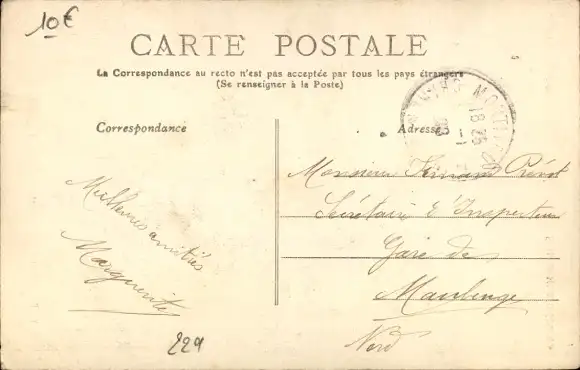 10€
CARTE POSTALE
La Correspondance au recto n'est pas acceptée par tous les pays étrangers
(Se renseigner à la Poste)
Correspondance
Adresse
18 25
Monsieur Fernand Prévot
Secrétaire d'Inspecteur
Gare de
Maubeuge
Nord
Meilleures amitiés
Marguerite
229